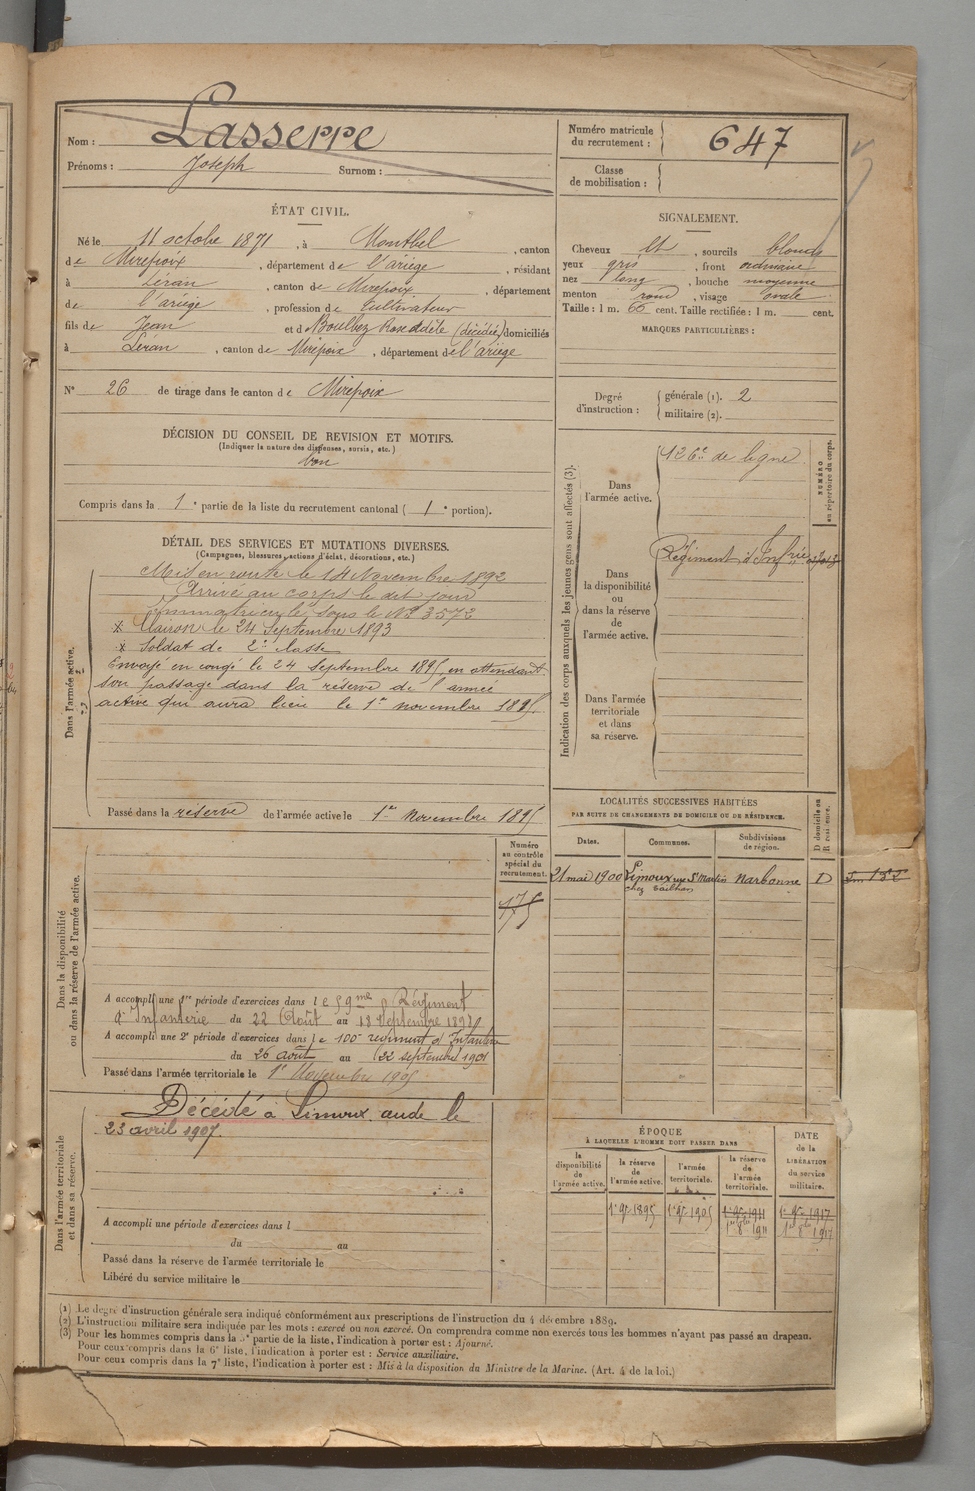 Nom : Lasserre
Prénoms : Joseph Surnom :
Numéro matricule du recrutement : 647
Classe de mobilisation :
ÉTAT CIVIL.
Né le 11 octobre 1871, à Montbel, canton
de Mirepoix, département de l'ariège, résidant
à Léran, canton de Mirepoix, département
de l'ariège, profession de Cultivateur
fils de Jean et de Boulbez Rose (décédée) domiciliés
à Léran, canton de Mirepoix, département de l'ariège
N° 26 de tirage dans le canton de Mirepoix
DÉCISION DU CONSEIL DE REVISION ET MOTIFS.
(Indiquer la nature des dispenses, sursis, etc.)
bon
Compris dans la 1e partie de la liste du recrutement cantonal ( 1e portion).
SIGNALEMENT.
Cheveux et, sourcils blonds
yeux gris, front ordinaire
nez long, bouche moyenne
menton rond, visage ovale
Taille : 1 m. 66 cent. Taille rectifiée : 1 m. cent.
MARQUES PARTICULIÈRES :
Degré d'instruction : générale (1). 2
militaire (2).
DÉTAIL DES SERVICES ET MUTATIONS DIVERSES.
(Campagnes, blessures, actions d'éclat, décorations, etc.)
Dans l'armée active.
Mis en route le 14 Novembre 1892
Arrivé au corps le dit jour
immatriculé sous le N° 3572
x Clairon le 24 Septembre 1893
x Soldat de 2e classe
Envoyé en congé le 24 septembre 1895, en attendant
son passage dans la réserve de l'armée
active qui aura lieu le 1er novembre 1895.
Passé dans la réserve de l'armée active le 1er novembre 1895
Indication des corps auxquels les jeunes gens sont affectés (3).
NUMÉRO au répertoire du corps.
Dans l'armée active.
126e de ligne
Dans la disponibilité ou dans la réserve de l'armée active.
Régiment d'Infrie
Dans l'armée territoriale et dans sa réserve.
LOCALITÉS SUCCESSIVES HABITÉES
PAR SUITE DE CHANGEMENTS DE DOMICILE OU DE RÉSIDENCE.
Dates. Communes. Subdivisions de région. D domicile ou R résidence.
21 mai 1900 Limoux rue St Martin Narbonne D
chez
Dans la disponibilité ou dans la réserve de l'armée active.
Numéro au contrôle spécial du recrutement.
175
A accompli une 1re période d'exercices dans le 59me Régiment
d'Infanterie du 22 Août au 18 Septembre 1898
A accompli une 2e période d'exercices dans le 100e régiment d'Infanterie
du 26 août au 22 septembre 1901
Passé dans l'armée territoriale le 1er Novembre 1905
Dans l'armée territoriale et dans sa réserve.
Décédé à Limoux aude le
23 avril 1907.
A accompli une période d'exercices dans l
du au
Passé dans la réserve de l'armée territoriale le
Libéré du service militaire le
ÉPOQUE
À LAQUELLE L'HOMME DOIT PASSER DANS
la disponibilité de l'armée active. la réserve de l'armée active. l'armée territoriale. la réserve de l'armée territoriale. DATE de la LIBÉRATION du service militaire.
1er 9re 1895 1er 9re 1905 1er 9re 1911 1er 9re 1917
1er 8bre 1911 1er 8bre 1917
(1) Le degré d'instruction générale sera indiqué conformément aux prescriptions de l'instruction du 4 décembre 1889.
(2) L'instruction militaire sera indiquée par les mots : exercé ou non exercé. On comprendra comme non exercés tous les hommes n'ayant pas passé au drapeau.
(3) Pour les hommes compris dans la 5e partie de la liste, l'indication à porter est : Ajourné.
Pour ceux compris dans la 6e liste, l'indication à porter est : Service auxiliaire.
Pour ceux compris dans la 7e liste, l'indication à porter est : Mis à la disposition du Ministre de la Marine. (Art. 4 de la loi.)